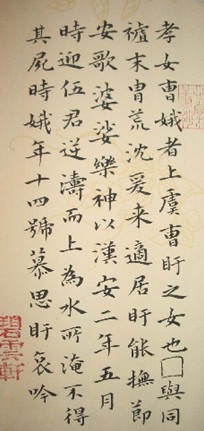 孝女曹娥者上虞曹盱之女也□與同
襱末曺荒沈爰来適居盱能撫節
安歌婆娑樂神以漢安二年五月
時迎伍君逆濤而上為水所淹不得
其屍時娥年十四號慕思盱哀吟
碧雲軒